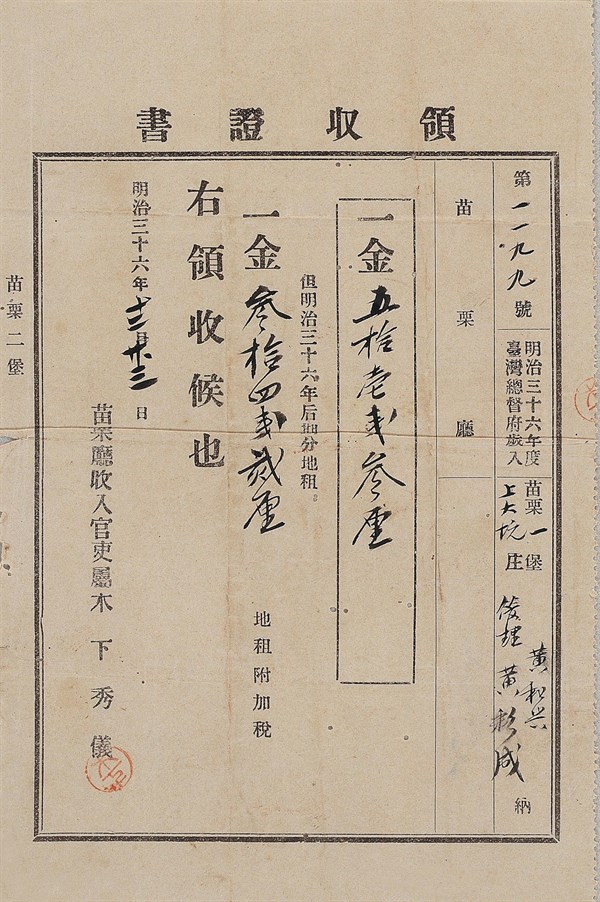 領收證書
第一一九九號
明治三十六年度
臺灣總督府歲入
苗栗一堡
上大坑庄
黃和興
管理 黃彩成 納
苗栗廳
一金五拾壱戔參厘
但明治三十六年后期分地租。
一金參拾四戔貳厘
地租附加稅
右領收候也
明治三十六年十二月廿三日
苗栗廳收入官吏屬木下秀儀
苗栗二堡